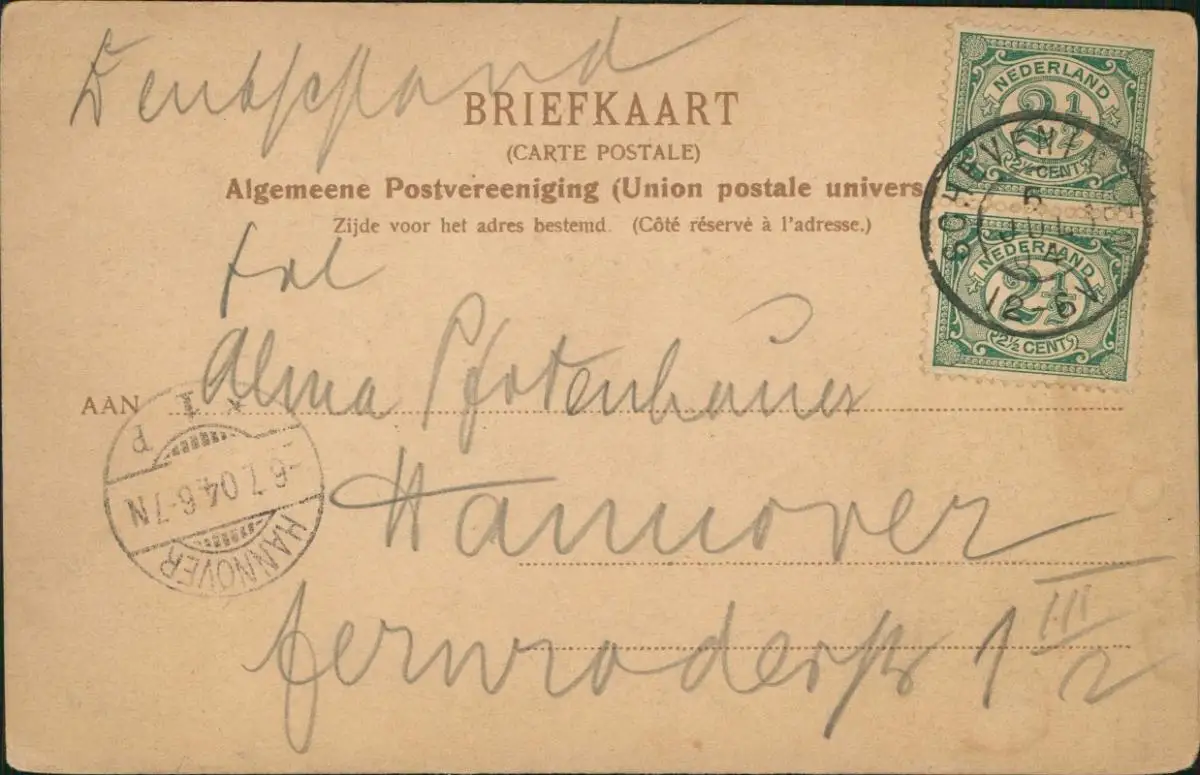 Deutschland
BRIEFKAART
(CARTE POSTALE)
Algemeene Postvereeniging (Union postale univers
Zijde voor het adres bestemd. (Côté réservé à l'adresse.)
NEDERLAND
2½
2½ CENT
5
JUL
12-6V
NEDERLAND
2½
2½ CENT
Frl
AAN Alma Pfotenhauer
Hannover
1 III/2
* 1 P
-6.7.04.6-7N
HANNOVER